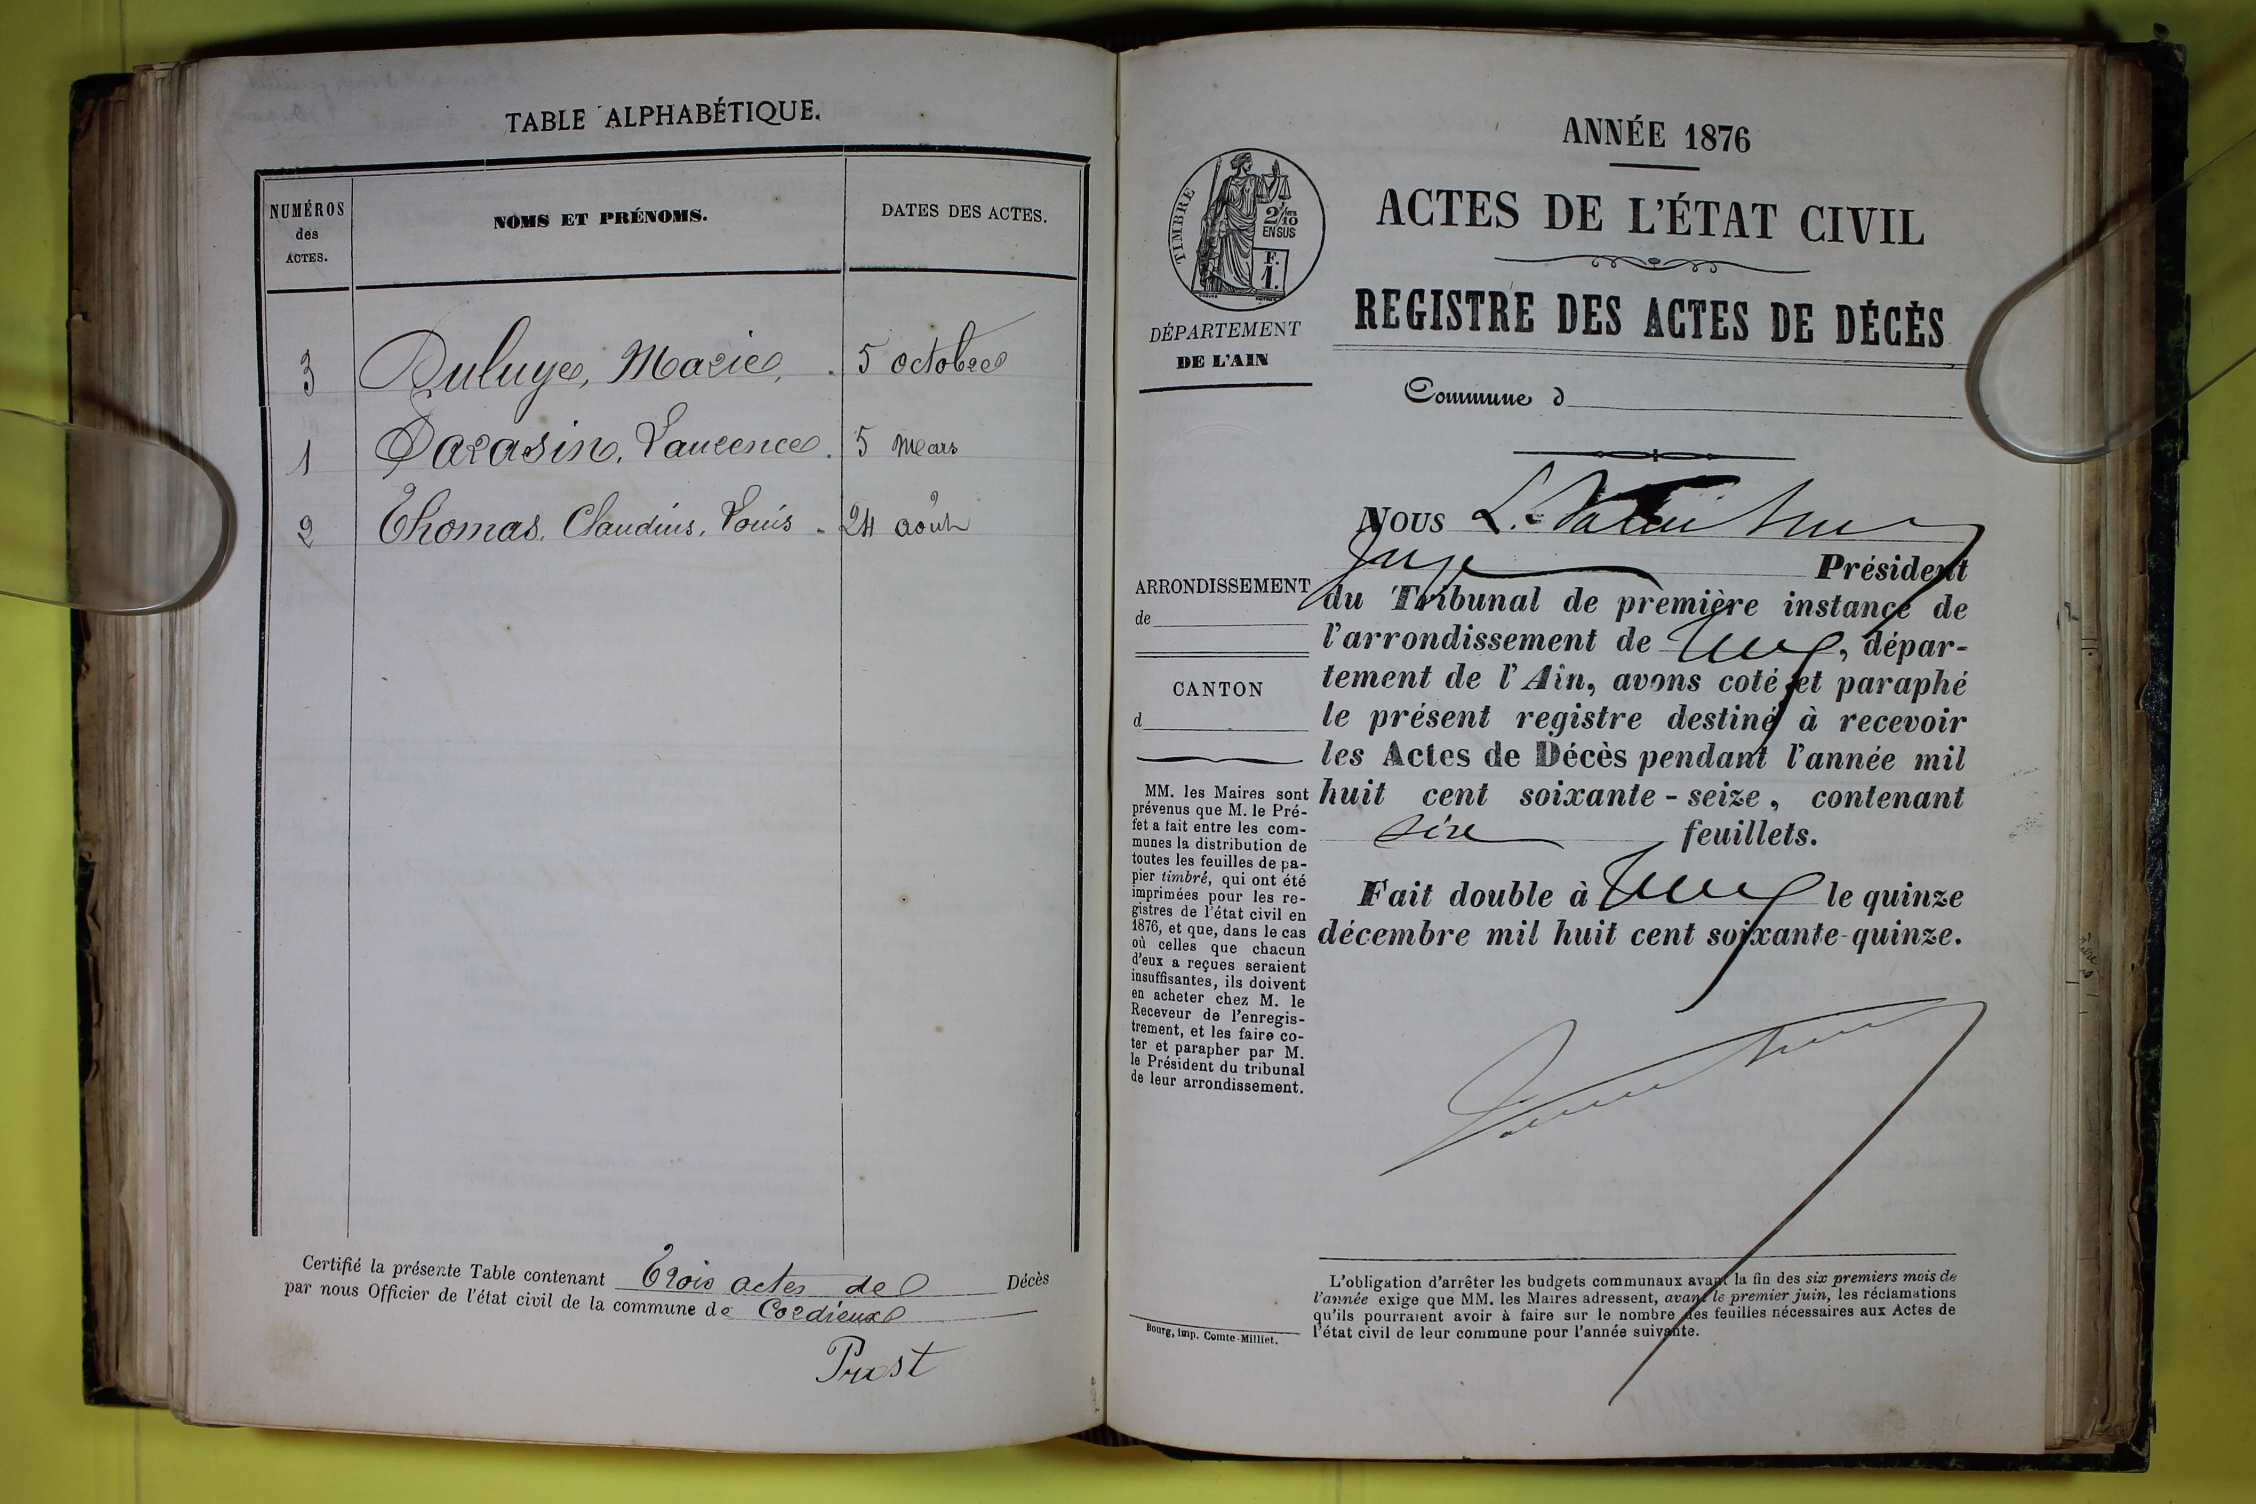 TABLE ALPHABÉTIQUE.
NUMÉROS
des
ACTES.
NOMS ET PRÉNOMS.
DATES DES ACTES.
3 Duluye, Marie, . 5 octobre
1 Parasin, Laurence . 5 Mars
2 Thomas, Claudius, Louis . 24 août
Certifié la présente Table contenant Trois actes de Décès
par nous Officier de l'état civil de la commune de Cordieux
Prost
ANNÉE 1876
ACTES DE L'ÉTAT CIVIL
REGISTRE DES ACTES DE DÉCÈS
TIMBRE
2/10
EN SUS
F.
1.
DÉPARTEMENT
DE L'AIN
Commune d
ARRONDISSEMENT
de
CANTON
d
MM. les Maires sont
prévenus que M. le Pré-
fet a fait entre les com-
munes la distribution de
toutes les feuilles de pa-
pier timbré, qui ont été
imprimées pour les re-
gistres de l'état civil en
1876, et que, dans le cas
où celles que chacun
d'eux a reçues seraient
insuffisantes, ils doivent
en acheter chez M. le
Receveur de l'enregis-
trement, et les faire co-
ter et parapher par M.
le Président du tribunal
de leur arrondissement.
Bourg, imp. Comte-Milliet.
NOUS L.
Juge Président
du Tribunal de première instance de
l'arrondissement de , dépar-
tement de l'Ain, avons coté et paraphé
le présent registre destiné à recevoir
les Actes de Décès pendant l'année mil
huit cent soixante-seize, contenant
six feuillets.
Fait double à le quinze
décembre mil huit cent soixante-quinze.
L'obligation d'arrêter les budgets communaux avant la fin des six premiers mois de
l'année exige que MM. les Maires adressent, avant le premier juin, les réclamations
qu'ils pourraient avoir à faire sur le nombre des feuilles nécessaires aux Actes de
l'état civil de leur commune pour l'année suivante.